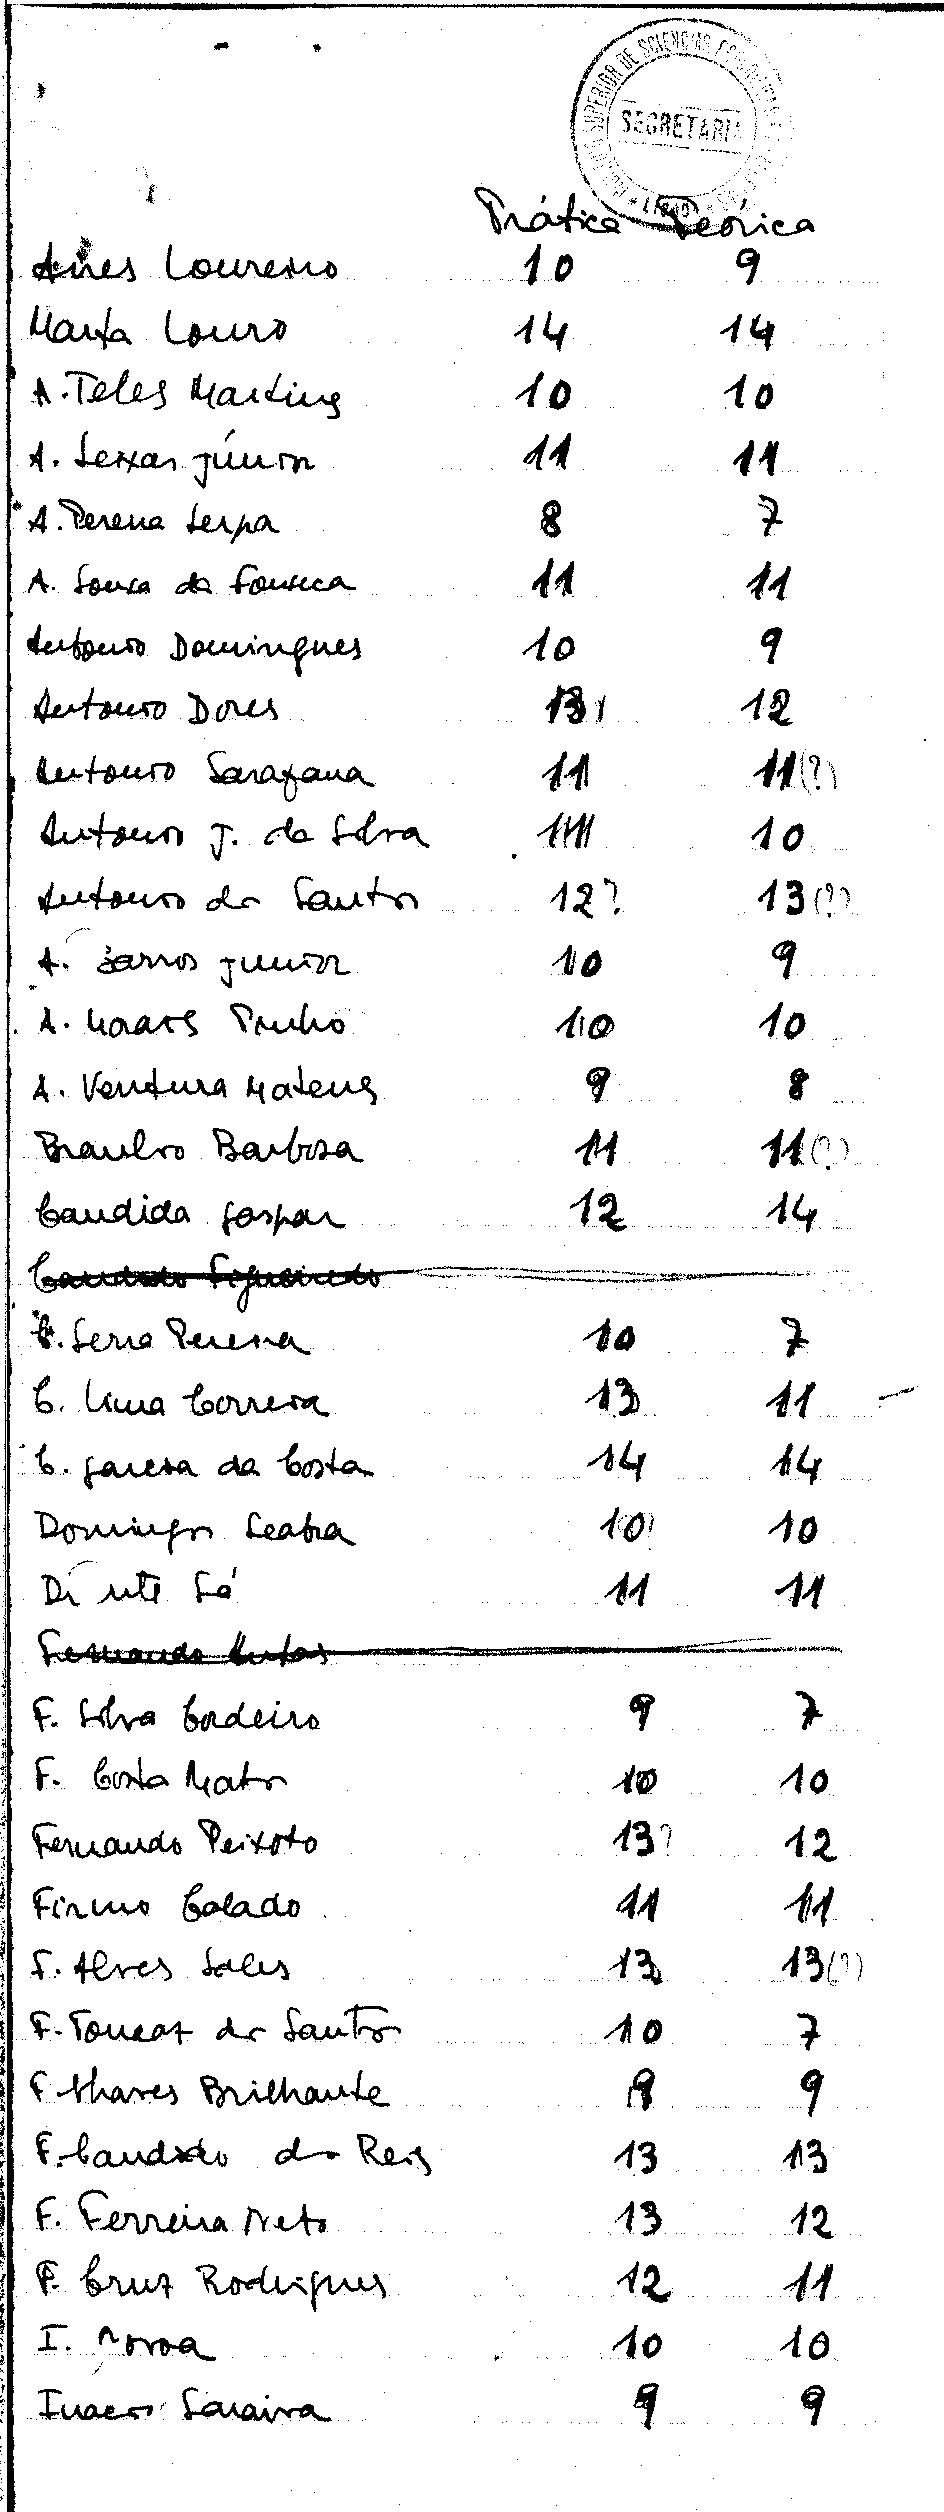 SUPERIOR DE SCIENCIAS
SECRETARIA
Prática Teórica
Aires Loureiro 10 9
Marta Louro 14 14
A. Teles Martins 10 10
A. Seixas júnior 11 11
A. Pereira Serpa 8 7
A. Sousa da Fonseca 11 11
Antonio Domingues 10 9
Antonio Dores 13 12
Antonio Sarafana 11 11(?)
Antonio J. da Silva 11 10
Antonio dos Santos 12? 13(?)
A. Barros junior 10 9
A. Moraes Pinho 10 10
A. Ventura Mateus 9 8
Braulio Barbosa 11 11(?)
Candida gaspar 12 14
Candido Figueiredo
C. Serra Pereira 10 7
C. Lima Correia 13 11
C. garcia da Costa 14 14
Domingos Seabra 10 10
Sá 11 11
Fernando Antas
F. Silva Cordeiro 9 7
F. Costa Matos 10 10
Fernando Peixoto 13? 12
Firmo Calado 11 11
F. Alves Sales 13 13(?)
F. dos Santos 10 7
F. Brilhante 8 9
F. Candido dos Reis 13 13
F. Ferreira Neto 13 12
F. Cruz Rodrigues 12 11
I. 10 10
Inacio Saraiva 9 9